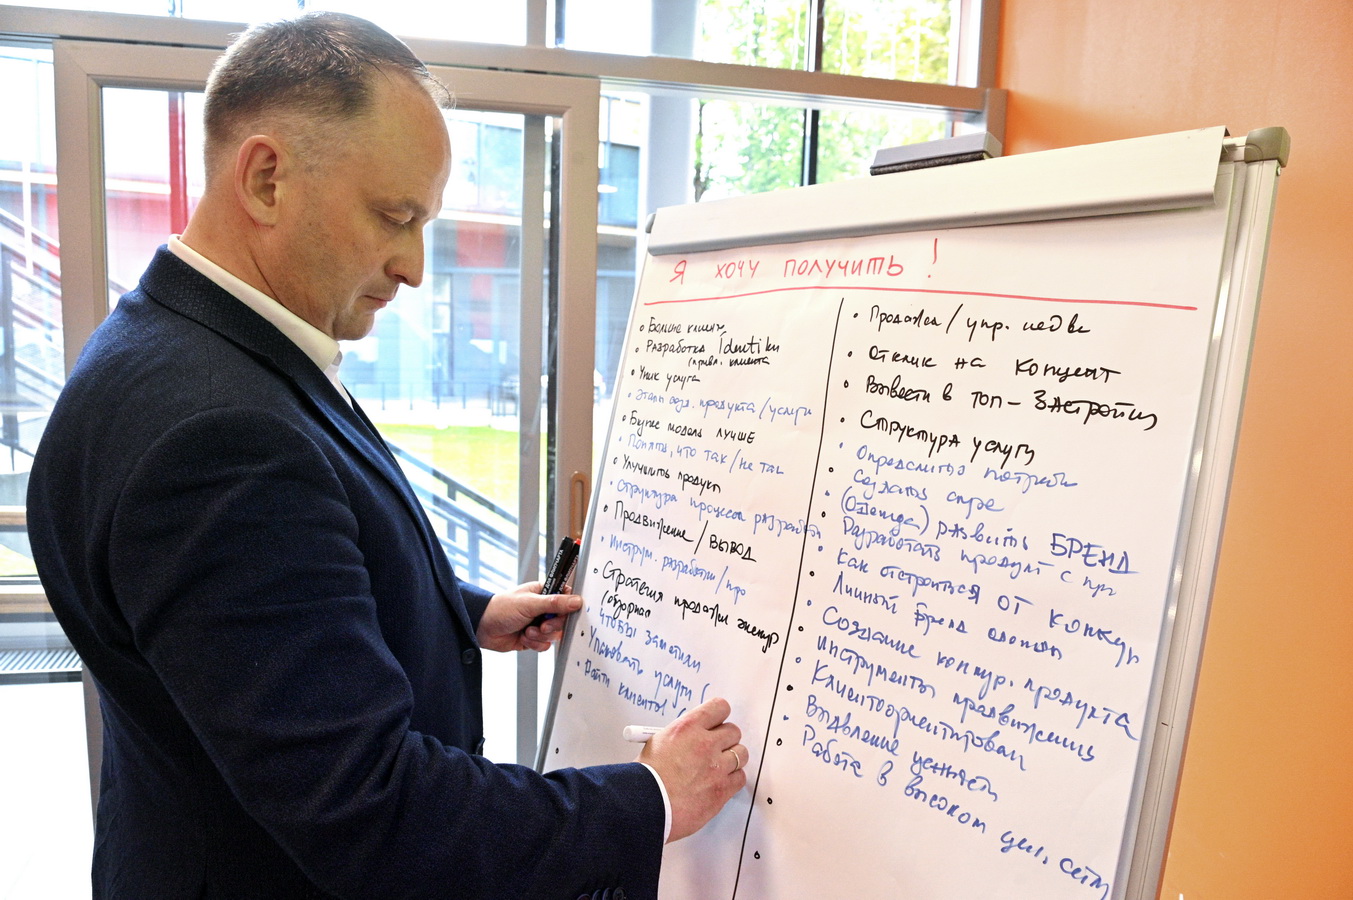 Я хочу получить!
Больше клиент
Разработка Identiku
(привл. клиента
Уник услуга
Этапы созд. продукта/услуги
Бизнес модель лучше
Понять, что так/не так
Улучшить продукт
Структура процесса разработки
Продвижение/вывод
Инструм. разработки/про
Стратегия продажи
(обзорная
Чтобы заметили
Упаковать услуги (
Найти клиенты (
Продажа/упр. недв
Отклик на концепт
Вывести в топ - Застройщ
Структура услуг
Определить потребн
Сделать
(Одежда) развить БРЕНД
Разработать продукт с
Как отстроиться от конкур
Личный бренд
Создание конкур. продукта
Инструменты продвижения
Клиентоориентирован
Выявление ценности
Работа в высоком цен. сегм